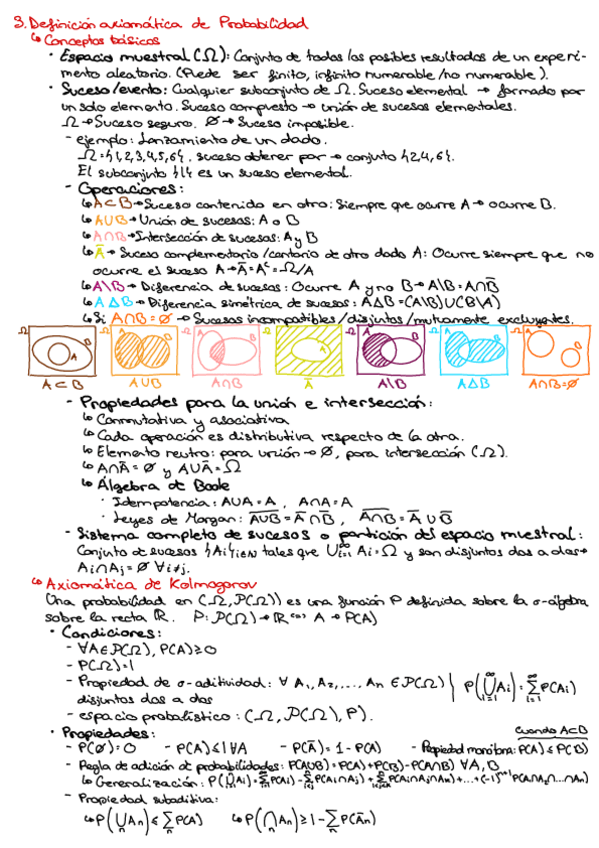 3. Definición axiomática de Probabilidad
↳ Conceptos básicos
• Espacio muestral (Ω): Conjunto de todos los posibles resultados de un experi-
mento aleatorio. (Puede ser finito, infinito numerable/no numerable).
• Suceso/evento: Cualquier subconjunto de Ω. Suceso elemental → formado por
un solo elemento. Suceso compuesto → unión de sucesos elementales.
Ω → Suceso seguro. Ø → Suceso imposible.
- ejemplo: Lanzamiento de un dado.
Ω = {1,2,3,4,5,6}. suceso obtener par → conjunto {2,4,6}.
El subconjunto {1} es un suceso elemental.
- Operaciones:
↳ A⊂B → Suceso contenido en otro: Siempre que ocurre A → ocurre B.
↳ A∪B → Unión de sucesos: A o B
↳ A∩B → Intersección de sucesos: A y B
↳ Ā → Suceso complementario/contario de otro dado A: Ocurre siempre que no
ocurre el suceso A → Ā = Aᶜ = Ω/A
↳ A\B → Diferencia de sucesos: Ocurre A y no B → A\B = A∩B̄
↳ A△B → Diferencia simétrica de sucesos: A△B = (A\B)∪(B\A)
↳ Si A∩B = Ø → Sucesos incompatibles/disjuntos/mutuamente excluyentes.
Ω A B Ω A B Ω A B Ω A Ω A B Ω A B Ω A B
A⊂B A∪B A∩B Ā A\B A△B A∩B=Ø
- Propiedades para la unión e intersección:
↳ Conmutativa y asociativa
↳ Cada operación es distributiva respecto de la otra.
↳ Elemento neutro: para unión → Ø, para intersección (Ω).
↳ A∩Ā = Ø y A∪Ā = Ω
↳ Álgebra de Boole
· Idempotencia: A∪A = A, A∩A = A
· Leyes de Morgan: \overline{A∪B} = Ā∩B̄, \overline{A∩B} = Ā∪B̄
- Sistema completo de sucesos o partición del espacio muestral:
Conjuto de sucesos {Ai}i∈N tales que ⋃_{i=1}^{∞} Ai = Ω y son disjuntos dos a dos →
Ai∩Aj = Ø ∀i≠j.
↳ Axiomática de Kolmogorov
Una probabilidad en (Ω, P(Ω)) es una función P definida sobre la σ-álgebra
sobre la recta ℝ. P: P(Ω) → ℝ A → P(A)
• Condiciones:
- ∀A∈P(Ω), P(A) ≥ 0
- P(Ω) = 1
- Propiedad de σ-aditividad: ∀ A₁, A₂, ..., An ∈ P(Ω) | P(⋃_{i=1}^{∞} Ai) = ∑_{i=1}^{∞} P(Ai)
disjuntos dos a dos
- espacio probalístico: (Ω, P(Ω), P).
• Propiedades: Cuando A⊂B
- P(Ø) = 0 - P(A) ≤ 1 ∀A - P(Ā) = 1 - P(A) - Propiedad monótona: P(A) ≤ P(B)
- Regla de adición de probabilidades: P(A∪B) = P(A) + P(B) - P(A∩B) ∀A, B
↳ Generalización: P(⋃_{i=1}^{n} Ai) = ∑P(Ai) - ∑_{i<j} P(Ai∩Aj) + ∑_{i<j<k} P(Ai∩Aj∩Ak) + ... + (-1)ⁿ⁺¹ P(A₁∩A₂∩...∩An)
- Propiedad subaditiva:
↳ P(⋃_n An) ≤ ∑_n P(A) ↳ P(⋂_n An) ≥ 1 - ∑_n P(Ān)